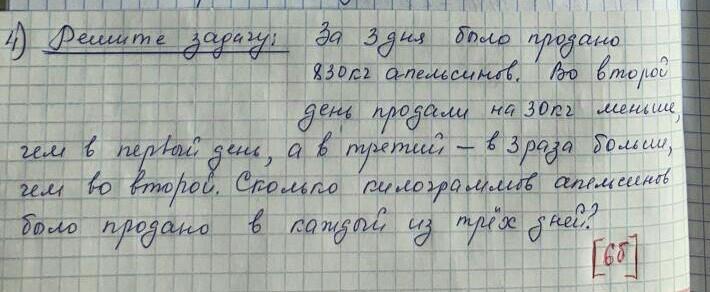 4) Решите задачу: За 3 дня было продано
830кг апельсинов. Во второй
день продали на 30кг меньше,
чем в первый день, а в третий – в 3 раза больше,
чем во второй. Сколько килограммов апельсинов
было продано в каждый из трёх дней?
[6б]